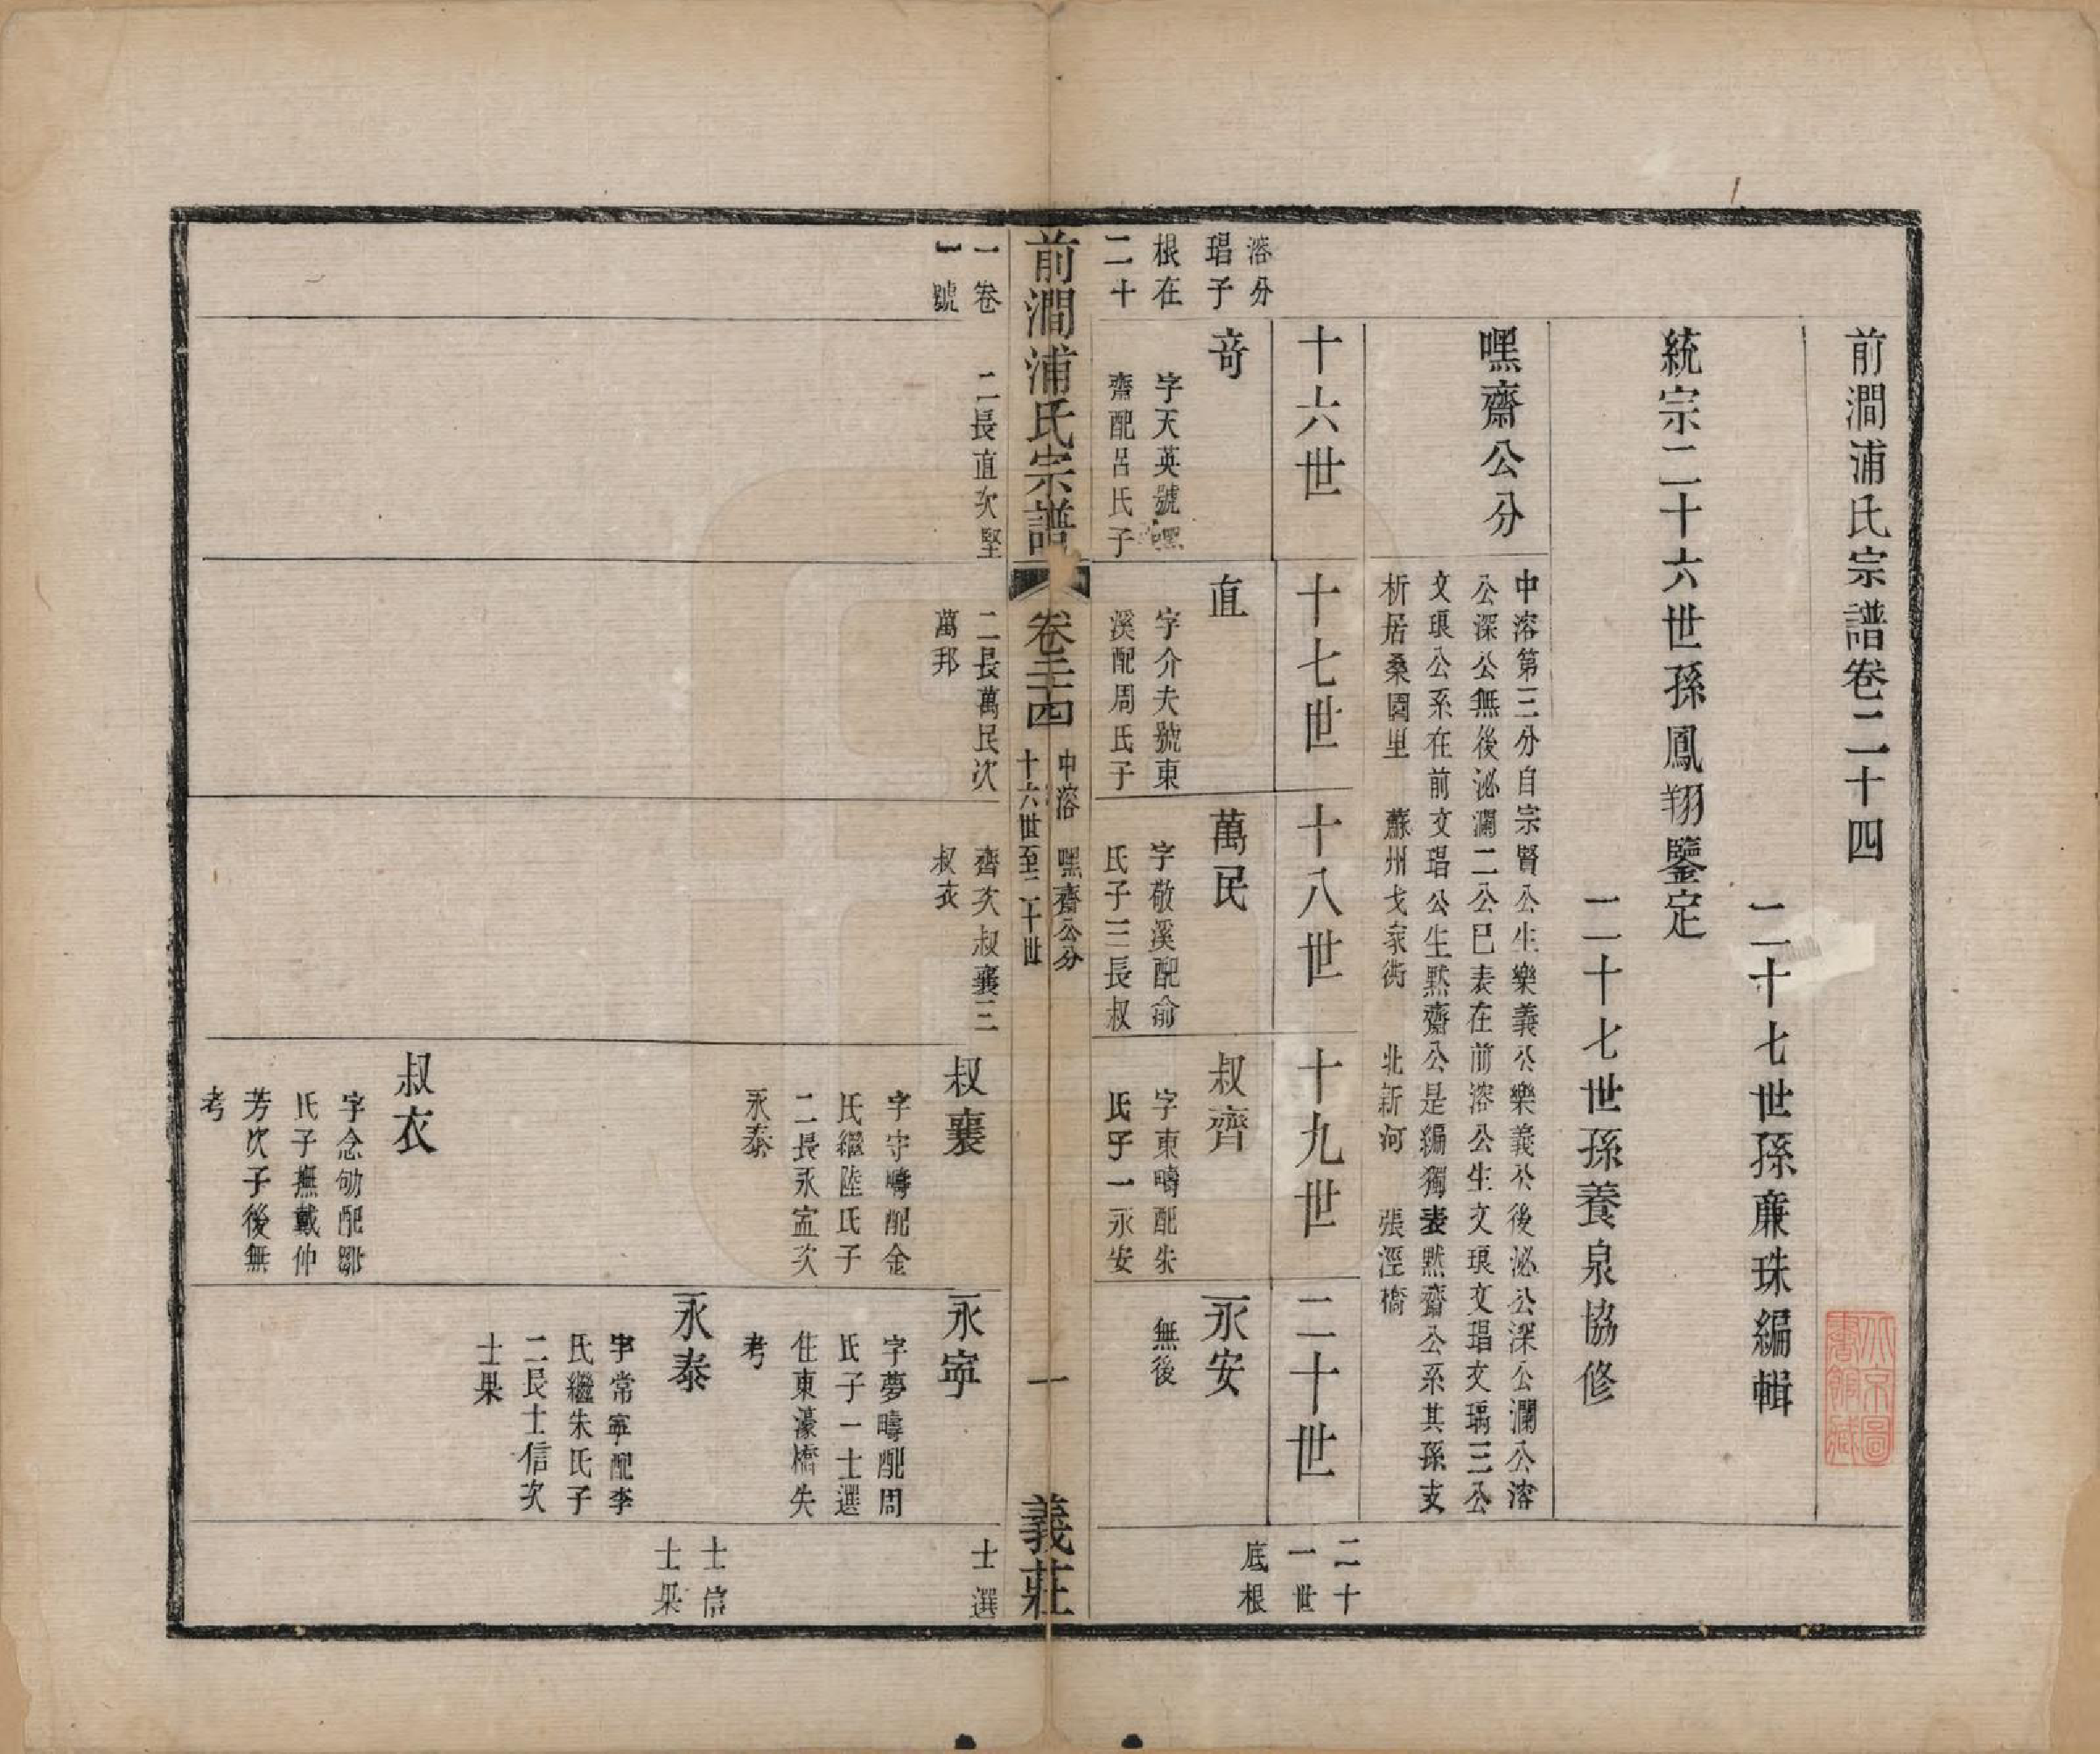 前澗浦氏宗譜卷二十四
二十七世孫廉珠編輯
統宗二十六世孫鳳翔鑒定
二十七世孫養泉協修
嘿齋公分
中溶第三分自宗賢公生樂義公樂義公後泌公深公瀾公溶
公深公無後泌瀾二公已表在前溶公生文琅文琩文瑀三公
文琅公系在前文琩公生默齋公是編獨表默齋公系其孫支
析居桑園里　蘇州戈家衖　北新河　張涇橋
十六世
十七世
十八世
十九世
二十世
二十
一世
底根
溶分
琩子
根在
二十
奇
字天英號嘿
齋配呂氏子
直
字介夫號東
溪配周氏子
萬民
字敬溪配俞
氏子三長叔
叔齊
字東疇配朱
氏子一永安
永安
無後
前澗浦氏宗譜
卷二十四
中溶　嘿齋公分
十六世至二十世
一
義莊
一卷
一號
二長直次堅
二長萬民次
萬邦
齊次叔襄三
叔衣
叔襄
字守疇配金
氏繼陸氏子
二長永寍次
永泰
叔衣
字念劬配鄒
氏子撫戴仲
芳次子後無
考
永寧
字夢疇配周
氏子一士選
住東濠橋失
考
永泰
字常寧配李
氏繼朱氏子
二長士信次
士果
士選
士信
士果